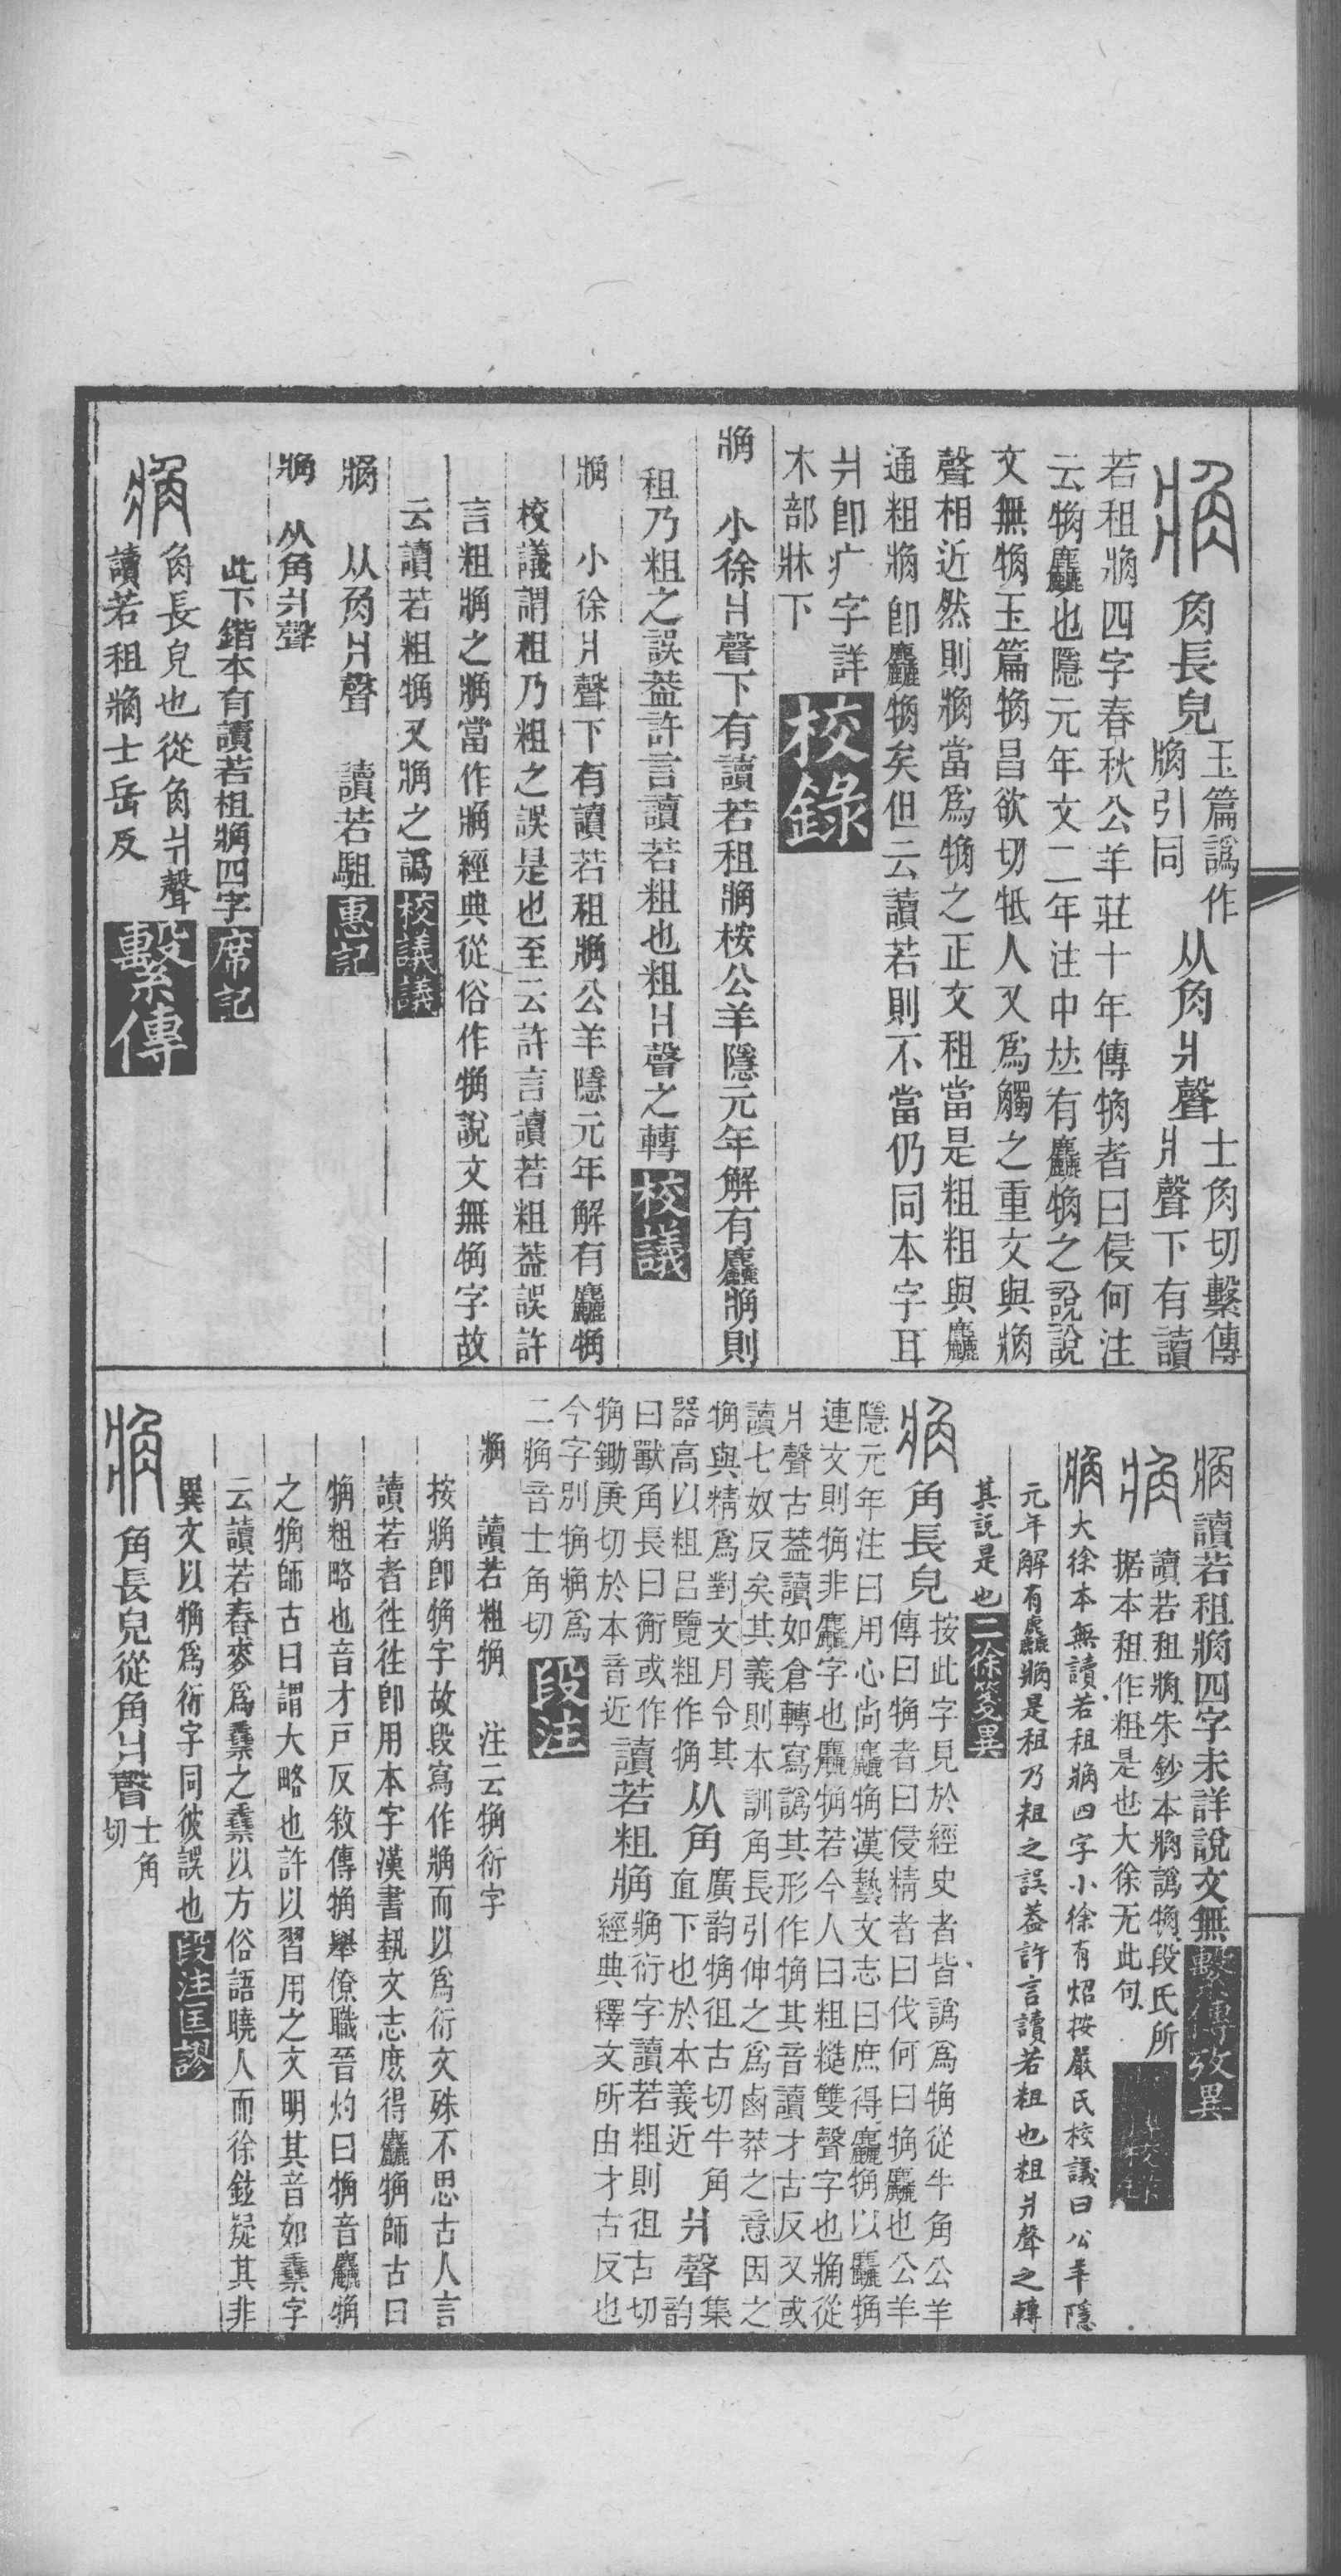 角長皃
玉篇譌作
𧣈引同
从角爿聲
士角切繫傳
爿聲下有讀
若租𧣈四字春秋公羊莊十年傳觕者曰侵何注
云觕麤也隱元年文二年注中𠀤有麤觕之說說
文無觕玉篇觕昌欲切牴人又爲觸之重文與𧣈
聲相近然則𧣈當爲觕之正文租當是粗粗與麤
通粗𧣈卽麤觕矣但云讀若則不當仍同本字耳
爿卽疒字詳
木部牀下
校錄
𧣈　小徐爿聲下有讀若租𧣈桉公羊隱元年解有麤𧣈則
租乃粗之誤葢許言讀若粗也粗爿聲之轉
校議
𧣈　小徐爿聲下有讀若租𧣈公羊隱元年解有麤觕
校議謂租乃粗之誤是也至云許言讀若粗葢誤許
言粗𧣈之𧣈當作𧣈經典從俗作觕說文無觕字故
云讀若粗觕又𧣈之譌
校議議
𧣈　从角爿聲　讀若駔
惠記
𧣈　从角爿聲
此下鍇本有讀若租𧣈四字
席記
角長皃也從角爿聲
讀若租𧣈士岳反
繫傳
𧣈讀若租𧣈四字未詳說文無
繫傳攷異
讀若租𧣈朱鈔本𧣈譌觕段氏所
据本租作粗是也大徐无此句
𧣈大徐本無讀若租𧣈四字小徐有炤按嚴氏校議曰公羊隱
元年解有麤𧣈是租乃粗之誤葢許言讀若粗也粗爿聲之轉
其說是也
二徐箋異
角長皃
按此字見於經史者皆譌爲觕從牛角公羊
傳曰觕者曰侵精者曰伐何曰觕麤也公羊
隱元年注曰用心尚麤觕漢藝文志曰庶得麤觕以麤觕
連文則觕非麤字也麤觕若今人曰粗糙雙聲字也𧣈從
爿聲古葢讀如倉轉寫譌其形作觕其音讀才古反又或
讀七奴反矣其義則本訓角長引伸之爲鹵莽之意因之
觕與精爲對文月令其
器高以粗呂覽粗作觕
从角
廣韵觕徂古切牛角
直下也於本義近
爿聲
集
韵
曰獸角長曰衝或作
觕鋤庚切於本音近
讀若粗𧣈
𧣈衍字讀若粗則徂古切
經典釋文所由才古反也
今字別觕𧣈爲
二𧣈音士角切
段注
𧣈　讀若粗觕　注云觕衍字
按𧣈卽觕字故段寫作𧣈而以爲衍文殊不思古人言
讀若者徃徃卽用本字漢書埶文志庶得麤觕師古曰
觕粗略也音才戸反敘傳觕舉僚職晉灼曰觕音麤觕
之觕師古曰謂大略也許以習用之文明其音如𣝕字
云讀若春麥爲𣝕之𣝕以方俗語曉人而徐鉉疑其非
異文以觕爲衍字同彼誤也
段注匡謬
角長皃從角爿聲
士角
切